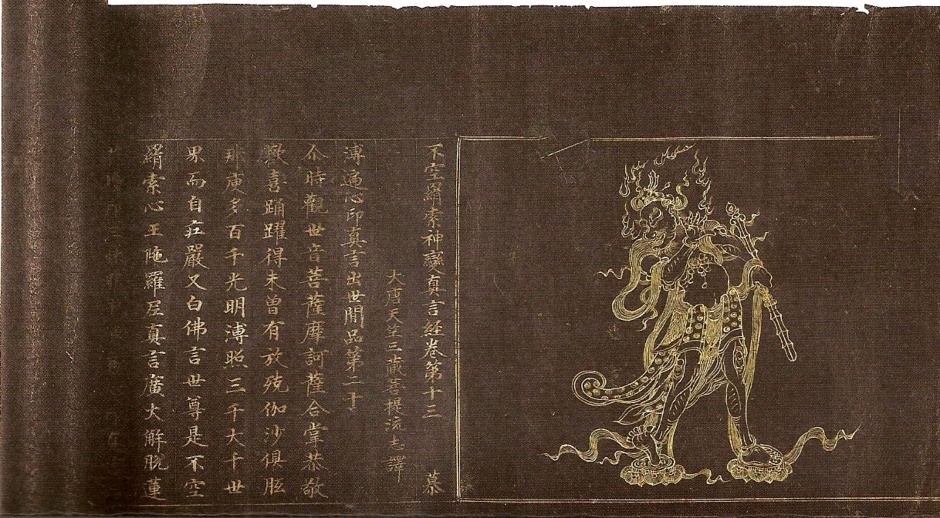 不空羂索神變真言經卷第十三 慕
大唐天竺三藏菩提流志譯
溥遍心印真言出世間品第二十
尒時觀世音菩薩摩訶薩合掌恭敬
歡喜踊躍得未曾有放殑伽沙俱胝
那庾多百千光明溥照三千大千世
界而自莊嚴又白佛言世尊是不空
羂索心王陁羅尼真言廣大解脫蓮